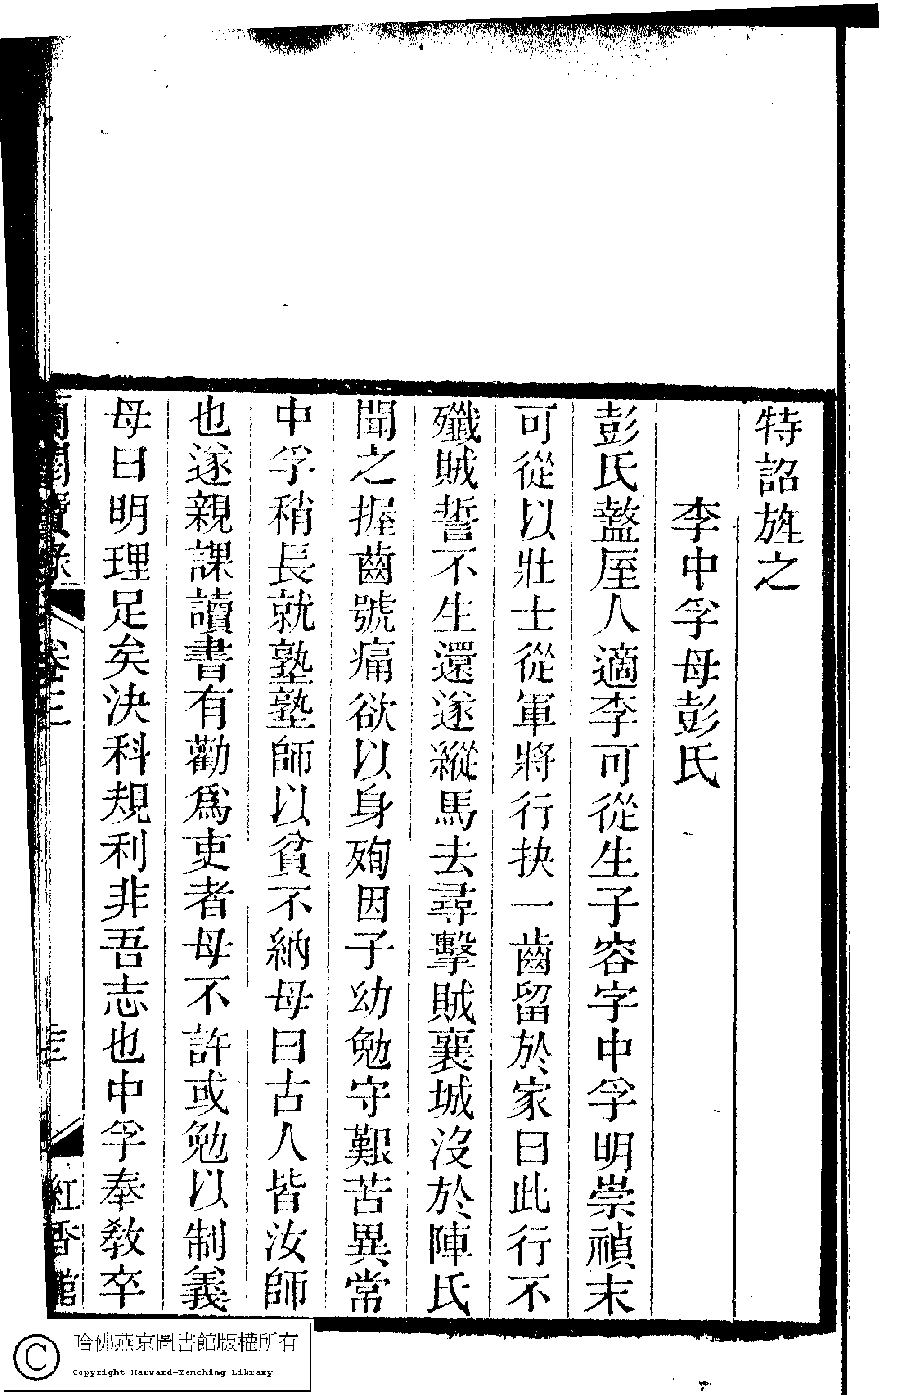 特詔旌之
李中孚母彭氏
彭氏盩厔人適李可從生子容字中孚明崇禎末
可從以壯士從軍將行抉一齒留於家曰此行不
殲賊誓不生還遂縱馬去尋擊賊襄城沒於陣氏
聞之握齒號痛欲以身殉因子幼勉守艱苦異常
中孚稍長就塾塾師以貧不納母曰古人皆汝師
也遂親課讀書有勸爲吏者母不許或勉以制義
母曰明理足矣決科規利非吾志也中孚奉敎卒
蘭閨寶錄 卷三 紅香館
哈佛燕京圖書館版權所有
Copyright Harvard-Yenching Library